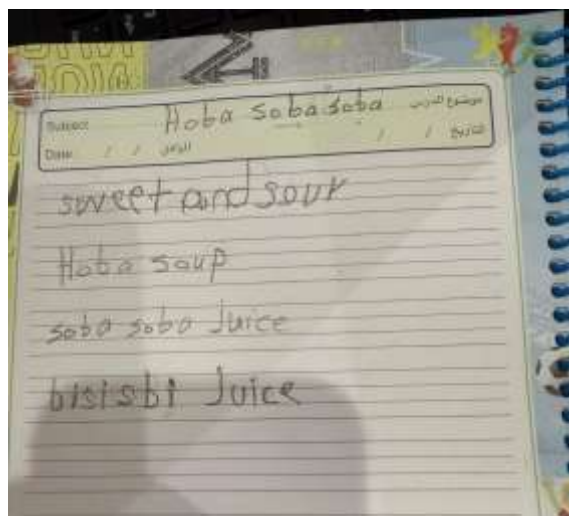 Subject Hoba soba soba موضوع الدرس
Date / / اليوم / / التاريخ
sweet and sour
Hoba soup
soba soba Juice
bisisbi Juice